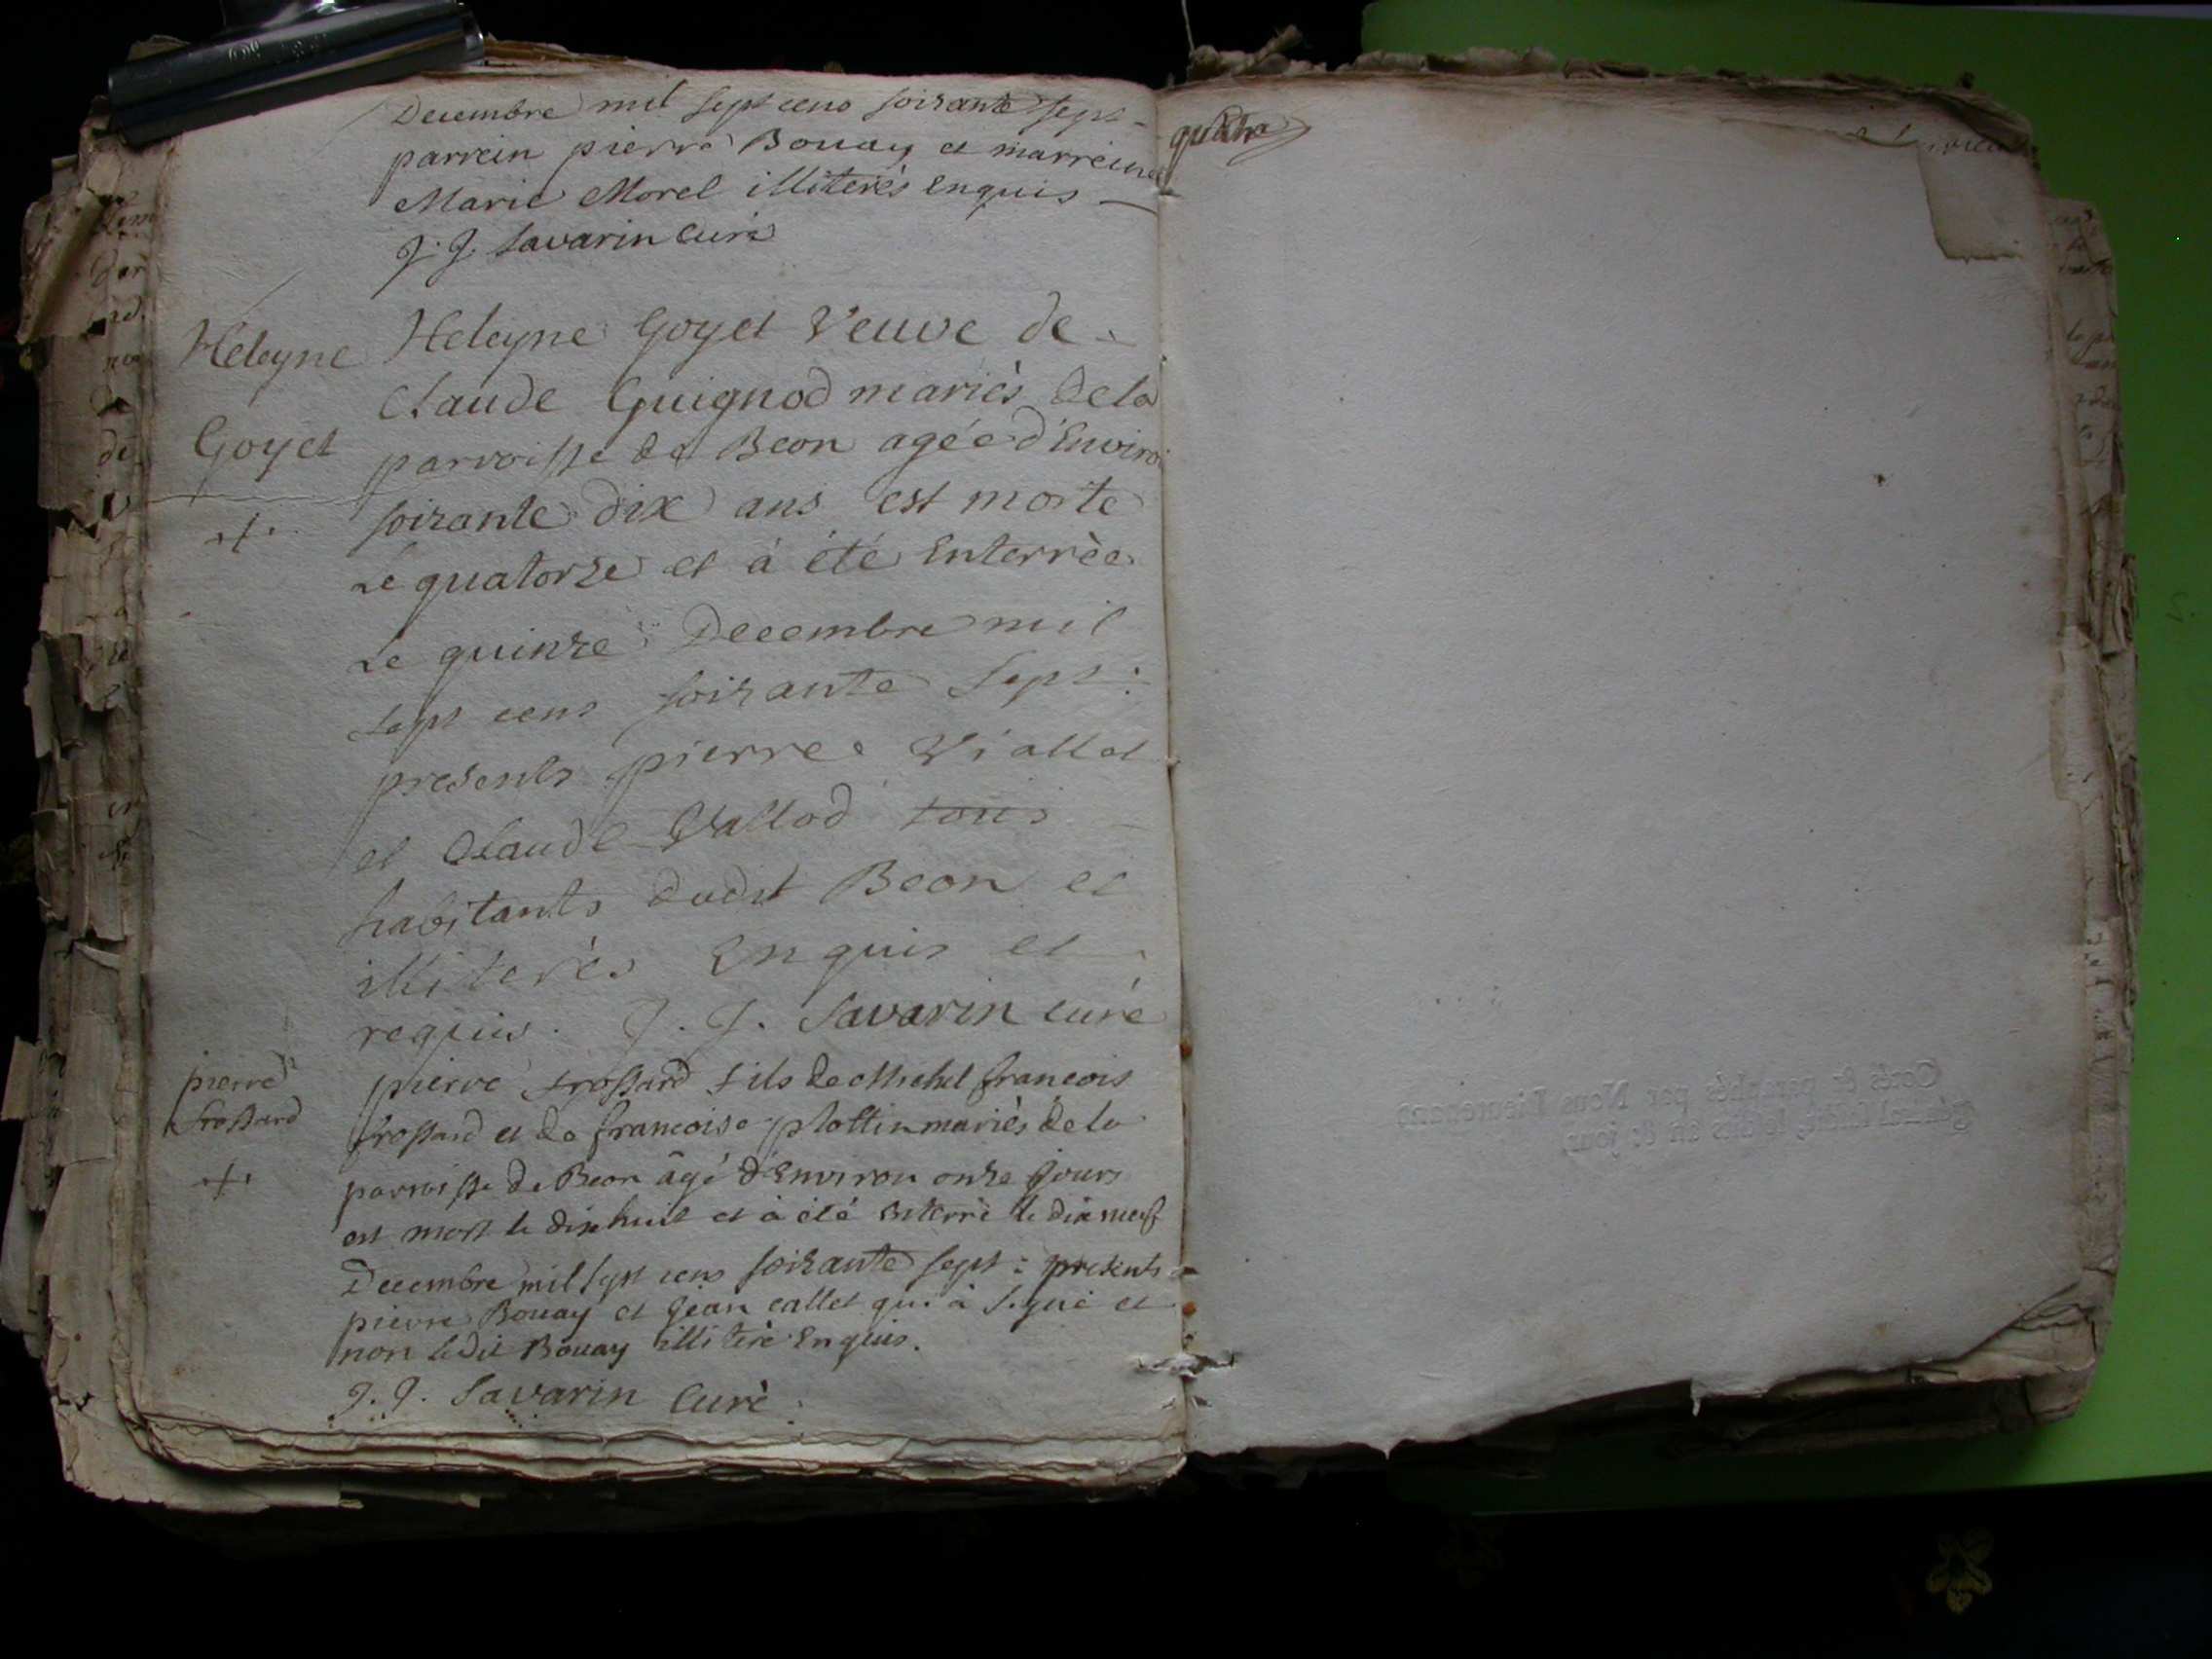 Decembre mil sept cens soixante sept
parrein pierre Bouay et marreine
Marie Morel illiterés enquis
J. J. Savarin Curé
Heleyne
Goyet
Heleyne Goyet veuve de
Claude Guignod mariés de la
parroisse de Beon agée d'Enviro
soixante dix ans est morte
le quatorze et à été Enterrèe
le quinze Decembre mil
sept cens soixante sept :
presents pierre Viallet
et Claude Vallod tous
habitants dudit Beon et
illiterés Enquis et
requis. J. J. Savarin curé
pierre
frossard
pierre frossard fils de Michel francois
frossard et de francoise plottin mariés de la
parroisse de Beon âgé d'Environ onze jours
est mort le dix huit et à été enterré le dix neuf
Decembre mil sept cens soixante sept : presents
pierre Bouay et Jean callet qui à signé et
non ledit Bouay illiteré Enquis.
J. J. Savarin Curè
Cotés & paraphés par Nous Lieutenant